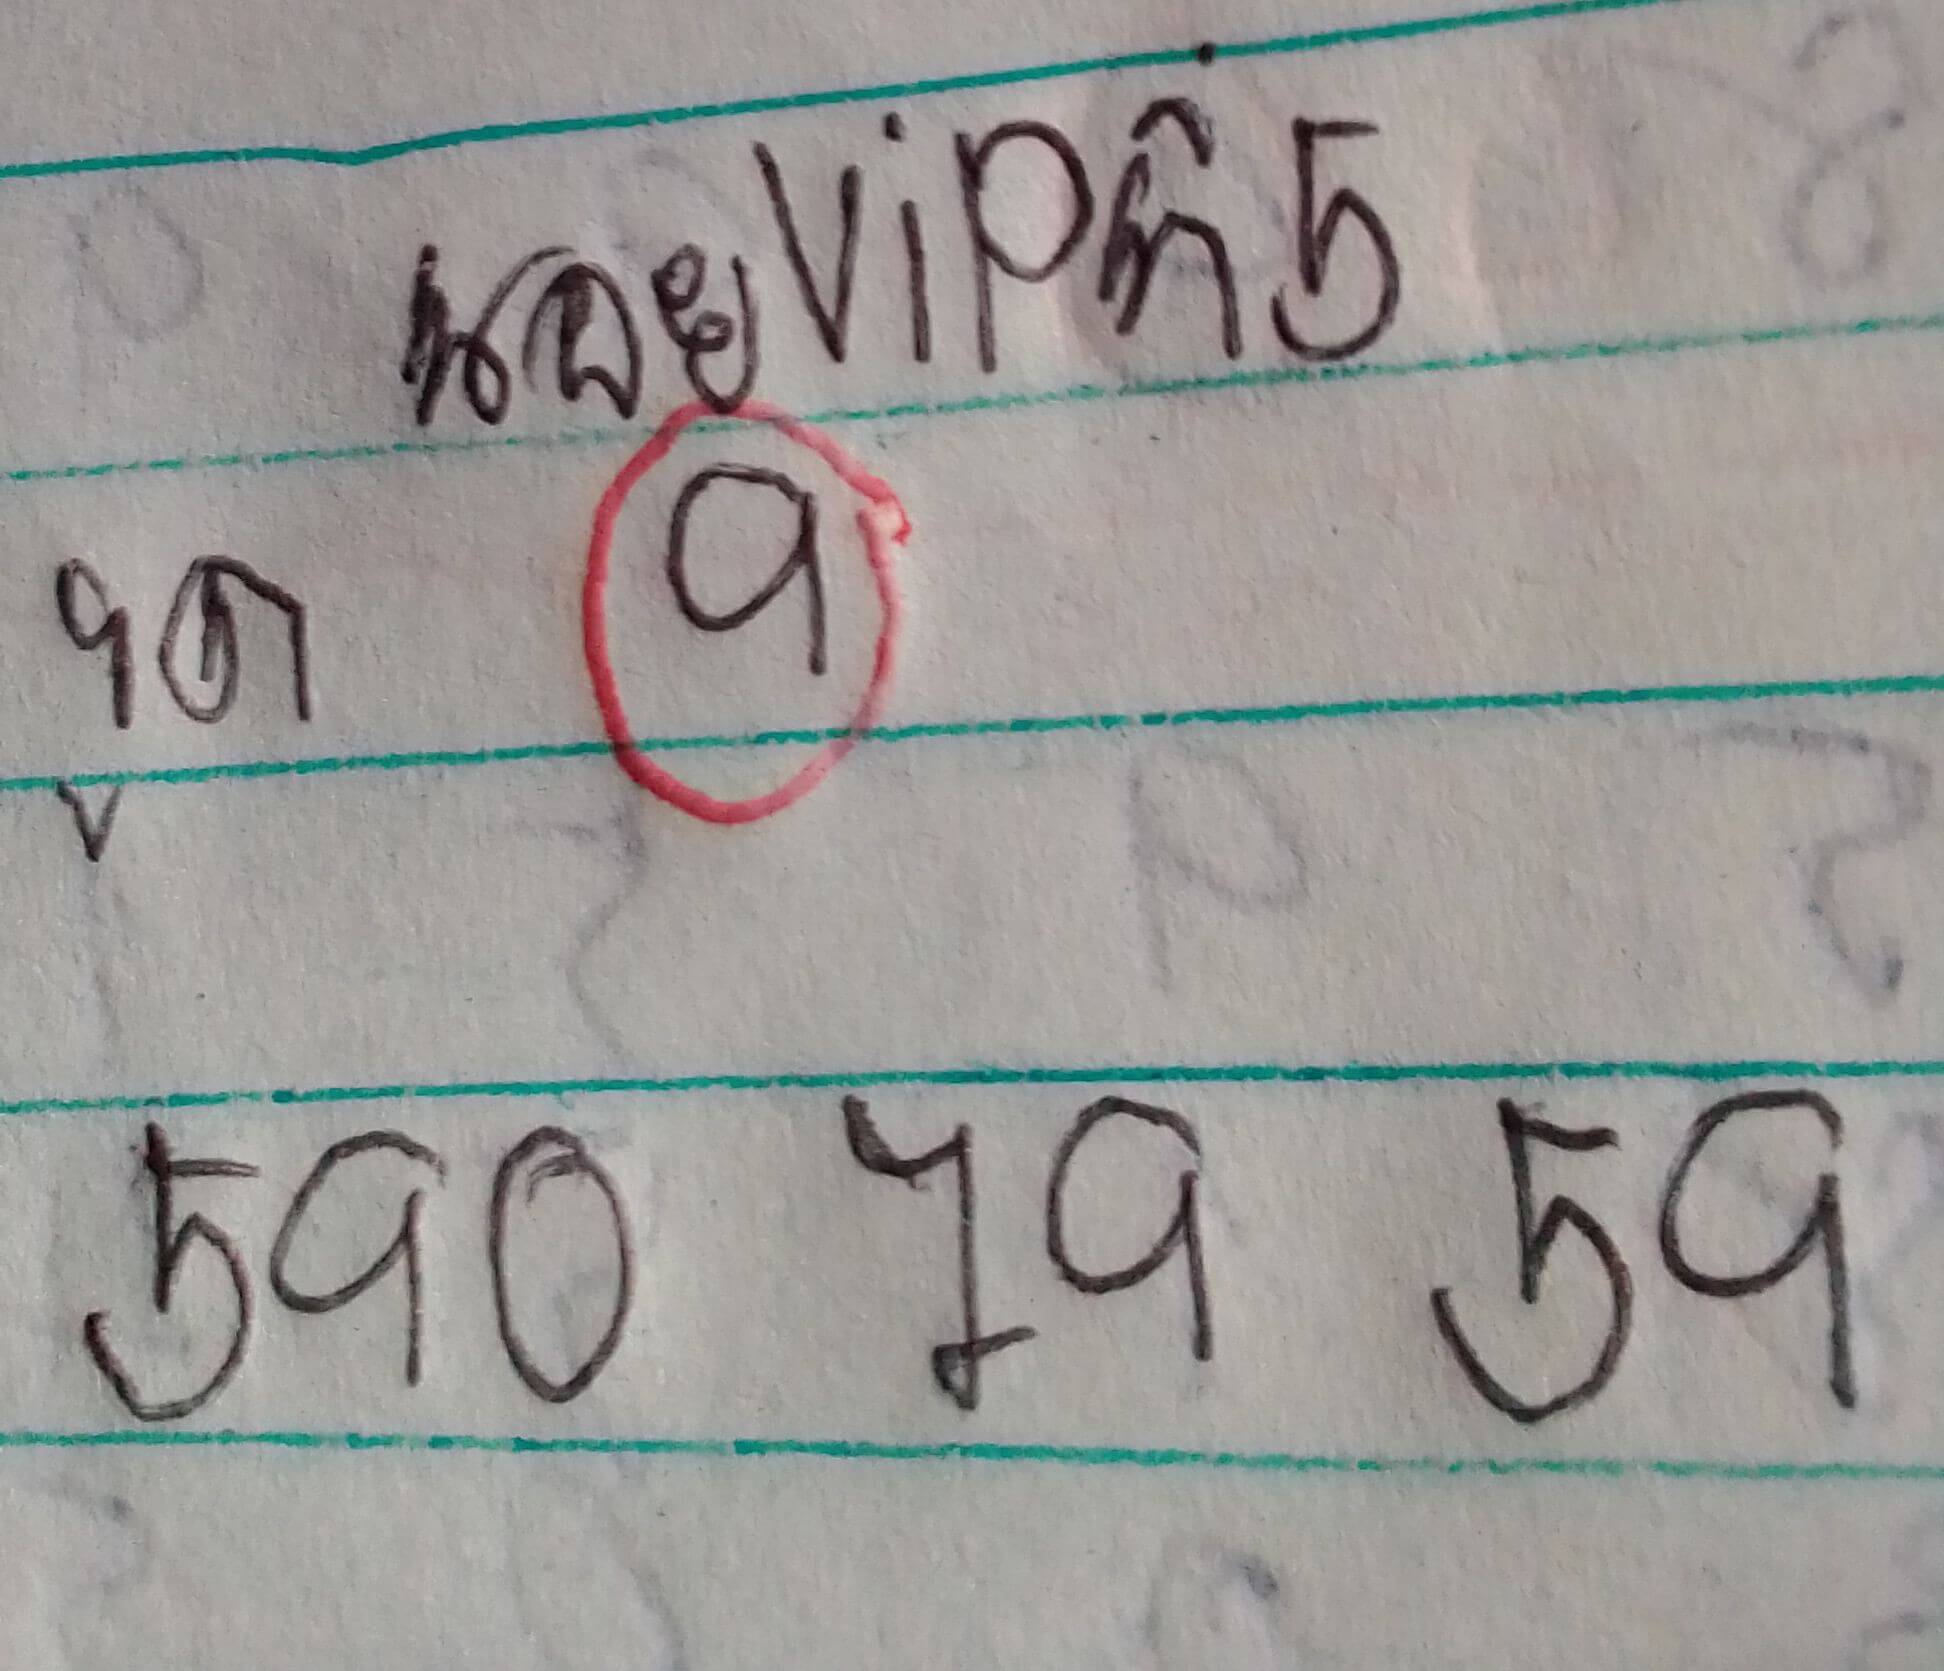 นอยVipที่5
รูด 9
590 79 59